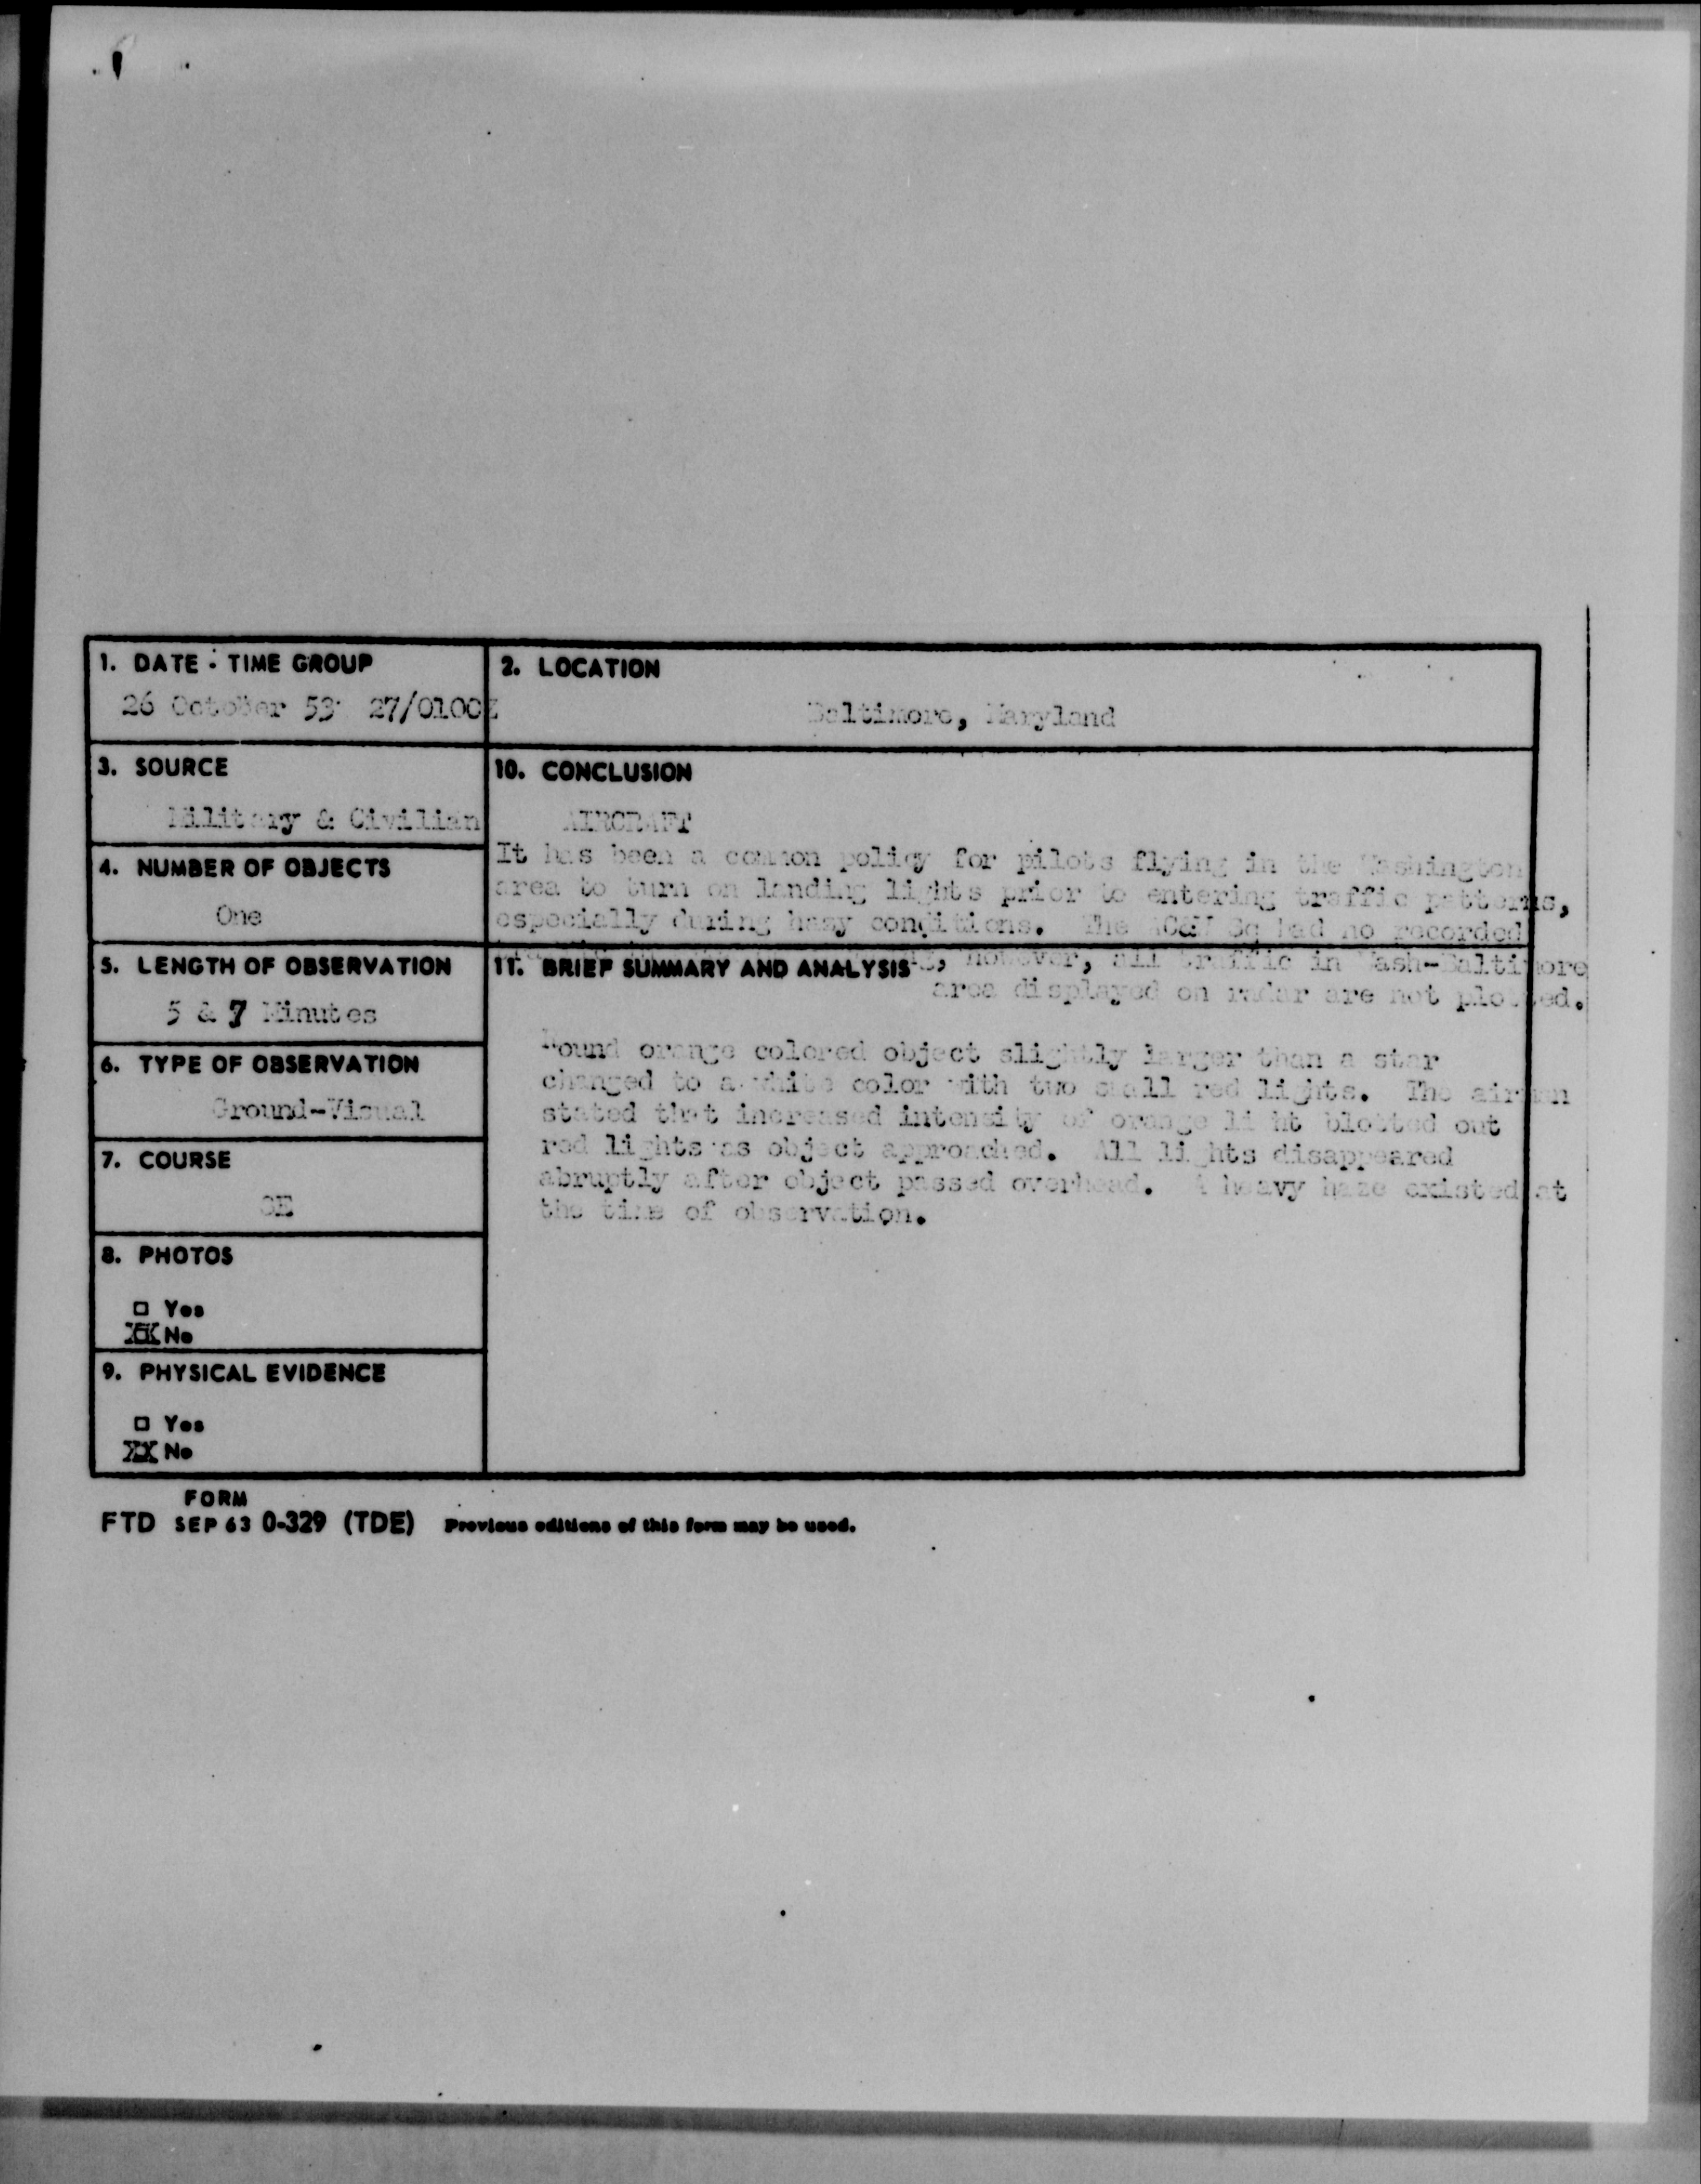 1. DATE - TIME GROUP
26 October 53 27/0100Z
2. LOCATION
Baltimore, Maryland
3. SOURCE
Military & Civilian
10. CONCLUSION
AIRCRAFT
It has been a common policy for pilots flying in the Washington
area to turn on landing lights prior to entering traffic patterns,
especially during hazy conditions. The AC&W Sq had no recorded
however, all traffic in Wash-Baltimore
area displayed on radar are not plotted.
4. NUMBER OF OBJECTS
One
5. LENGTH OF OBSERVATION
5 & 7 Minutes
11. BRIEF SUMMARY AND ANALYSIS
Round orange colored object slightly larger than a star
changed to a white color with two small red lights. The airman
stated that increased intensity of orange light blotted out
red lights as object approached. All lights disappeared
abruptly after object passed overhead. A heavy haze existed at
the time of observation.
6. TYPE OF OBSERVATION
Ground-Visual
7. COURSE
SE
8. PHOTOS
□ Yes
XX No
9. PHYSICAL EVIDENCE
□ Yes
XX No
FORM
FTD SEP 63 0-329 (TDE) Previous editions of this form may be used.